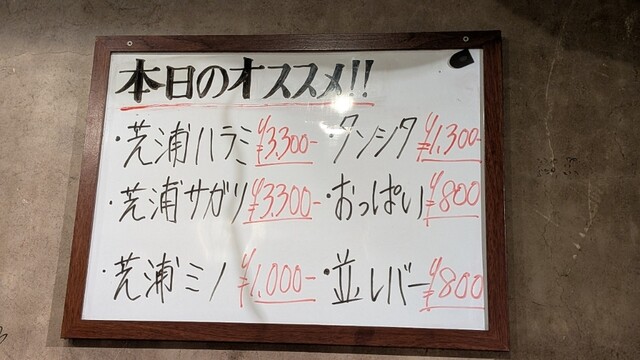 本日のオススメ!!
・芝浦ハラミ ¥3,300-
・芝浦サガリ ¥3,300-
・芝浦ミノ ¥1,000-
・タンシタ ¥1,300-
・おっぱい ¥800
・並レバー ¥800